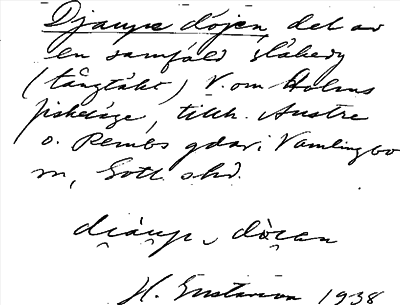 Djaupe döjen del av
en samfäld slåkedy
(tångtäkt) V. om Holms
fiskeläge, tillh. Austre
o. Rembs gdar i Vamlingbo
sn, Gotl. shd.
H. Gustavson 1938